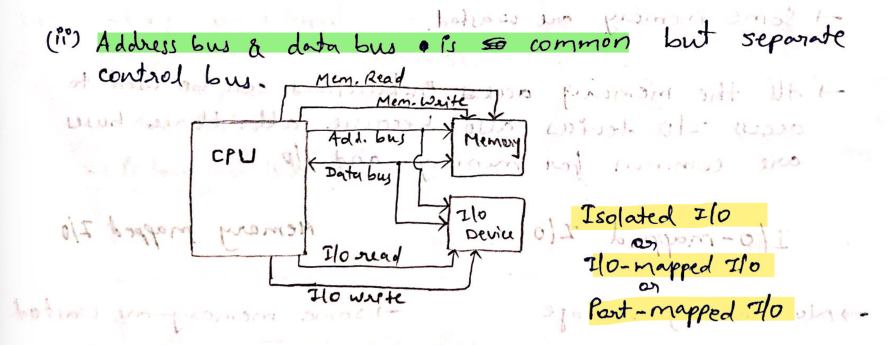 (ii) Address bus & data bus is common but separate
control bus.
Mem. Read
Mem. Write
Add. bus
Memory
CPU
Data bus
I/O
Device
I/O read
I/O write
Isolated I/O
or
I/O-mapped I/O
or
Port-mapped I/O